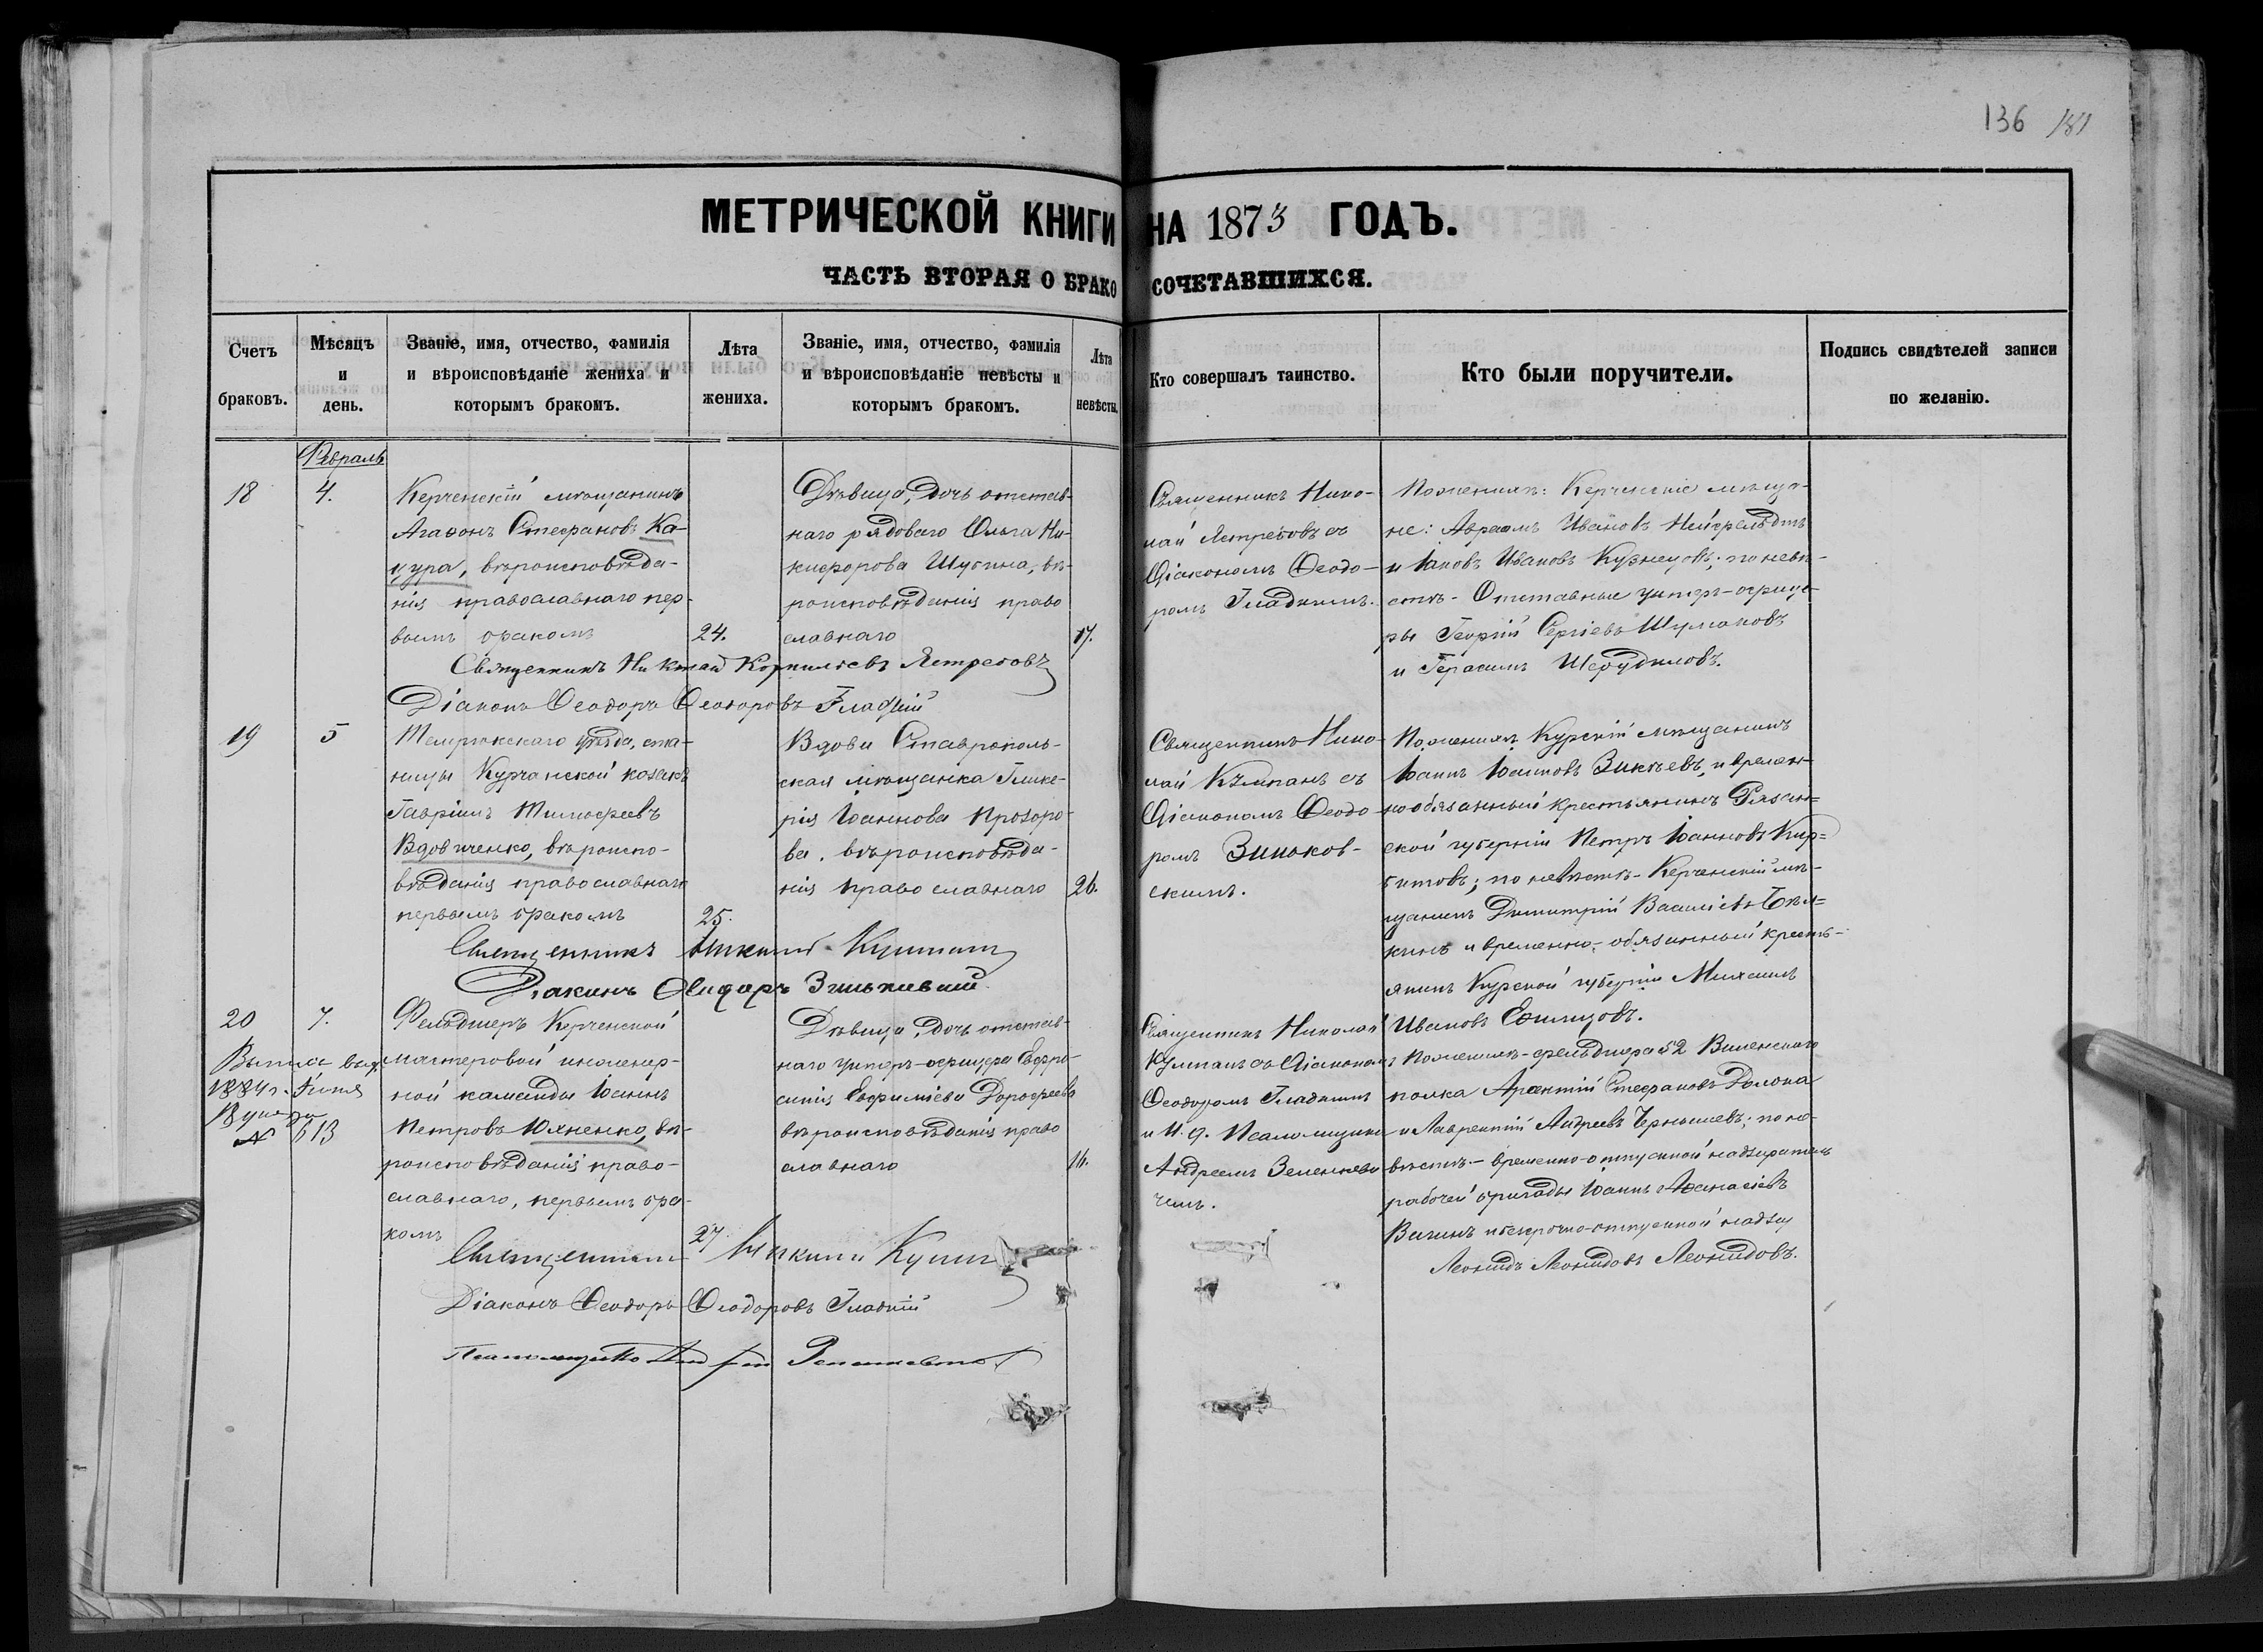 136 181
МЕТРИЧЕСКОЙ КНИГИ НА 1873 ГОДЪ.
ЧАСТЬ ВТОРАЯ О БРАКОСОЧЕТАВШИХСЯ.
Счетъ браковъ.
Мѣсяцъ и день.
Званіе, имя, отчество, фамилія
и вѣроисповѣданіе жениха и
которымъ бракомъ.
Лѣта
жениха.
Званіе, имя, отчество, фамилія
и вѣроисповѣданіе невѣсты и
которымъ бракомъ.
Лѣта
невѣсты.
Кто совершалъ таинство.
Кто были поручители.
Подпись свидѣтелей записи
по желанію.
Февраль
18
4.
Керченскій мѣщанинъ
Агаѳонъ Стефановъ Ка-
цура, вѣроисповѣда-
нія православнаго пер-
вымъ бракомъ
24.
Дѣвица, дочь отстав-
наго рядоваго Ольга Ни-
кифорова Шубина, вѣ-
роисповѣданія право
славнаго
17.
Священникъ Нико-
лай Ястребовъ съ
Діакономъ Ѳеодо-
ромъ Гладкимъ.
По женихѣ: Керченскіе мѣща-
не: Авраамъ Ивановъ Нейфельдтъ
и Іаковъ Ивановъ Кузнецовъ; по невѣ-
стѣ - Отставные унтеръ-офице-
ры Георгій Сергіевъ Шумаковъ
и Герасимъ Шебудиловъ.
Священникъ Николай Корнильевъ Ястребовъ
Діаконъ Ѳеодоръ Ѳеодоровъ Гладкій
19
5
Темрюкскаго уѣзда, ста-
ницы Курчанской козакъ
Гавріилъ Тимофеевъ
Вдовиченко, вѣроиспо-
вѣданія православнаго
первымъ бракомъ
25.
Вдова Ставрополь-
ская мѣщанка Глике-
рія Іоаннова Прозоро-
ва, вѣроисповѣда-
нія православнаго
26.
Священникъ Нико-
лай Кумпанъ съ
Діакономъ Ѳеодо-
ромъ Зиньков-
скимъ.
По женихѣ Курскій мѣщанинъ
Іоаннъ Іоанновъ Зиктьевъ, и времен-
нообязанный крестьянинъ Рязан=
ской губерніи Петръ Іоанновъ Кир=
битовъ; по невѣстѣ - Керченскій мѣ-
щанинъ Димитрій Васильевъ Бѣл=
кинъ и временно-обязанный кресть-
янинъ Курской губерніи Михаилъ
Ивановъ Ефимцовъ.
Священникъ Николай Кумпанъ
Діаконъ Ѳеодоръ Зиньковскій
20
7.
Выпись выд.
1884 г. Іюня
№ 613
Фельдшеръ Керченской
мастеровой инженер-
ной команды Іоаннъ
Петровъ Юхненко, вѣ-
роисповѣданія право-
славнаго, первымъ бра-
комъ
27
Дѣвица, дочь отстав-
наго унтеръ-офицера Евфро-
синія Евфиміева Дорофеева
вѣроисповѣданія право
славнаго
16.
Священникъ Николай
Кумпанъ съ Діакономъ
Ѳеодоромъ Гладкимъ
и И. д. Псаломщика
Андреемъ Зеленкеви
чемъ.
По женихѣ - фельдшера 52 Виленскаго
полка Арсентій Стефановъ Долона
и Лаврентій Андреевъ Чернышевъ; по не-
вѣстѣ - временно-отпускной надзиратель
рабочей бригады Іоаннъ Аѳанасіевъ
Вагинъ и безсрочно-отпускной надзи
Леонидъ Леонидовъ Леонидовъ.
Священникъ Николай Кумп
Діаконъ Ѳеодоръ Ѳеодоровъ Гладкій